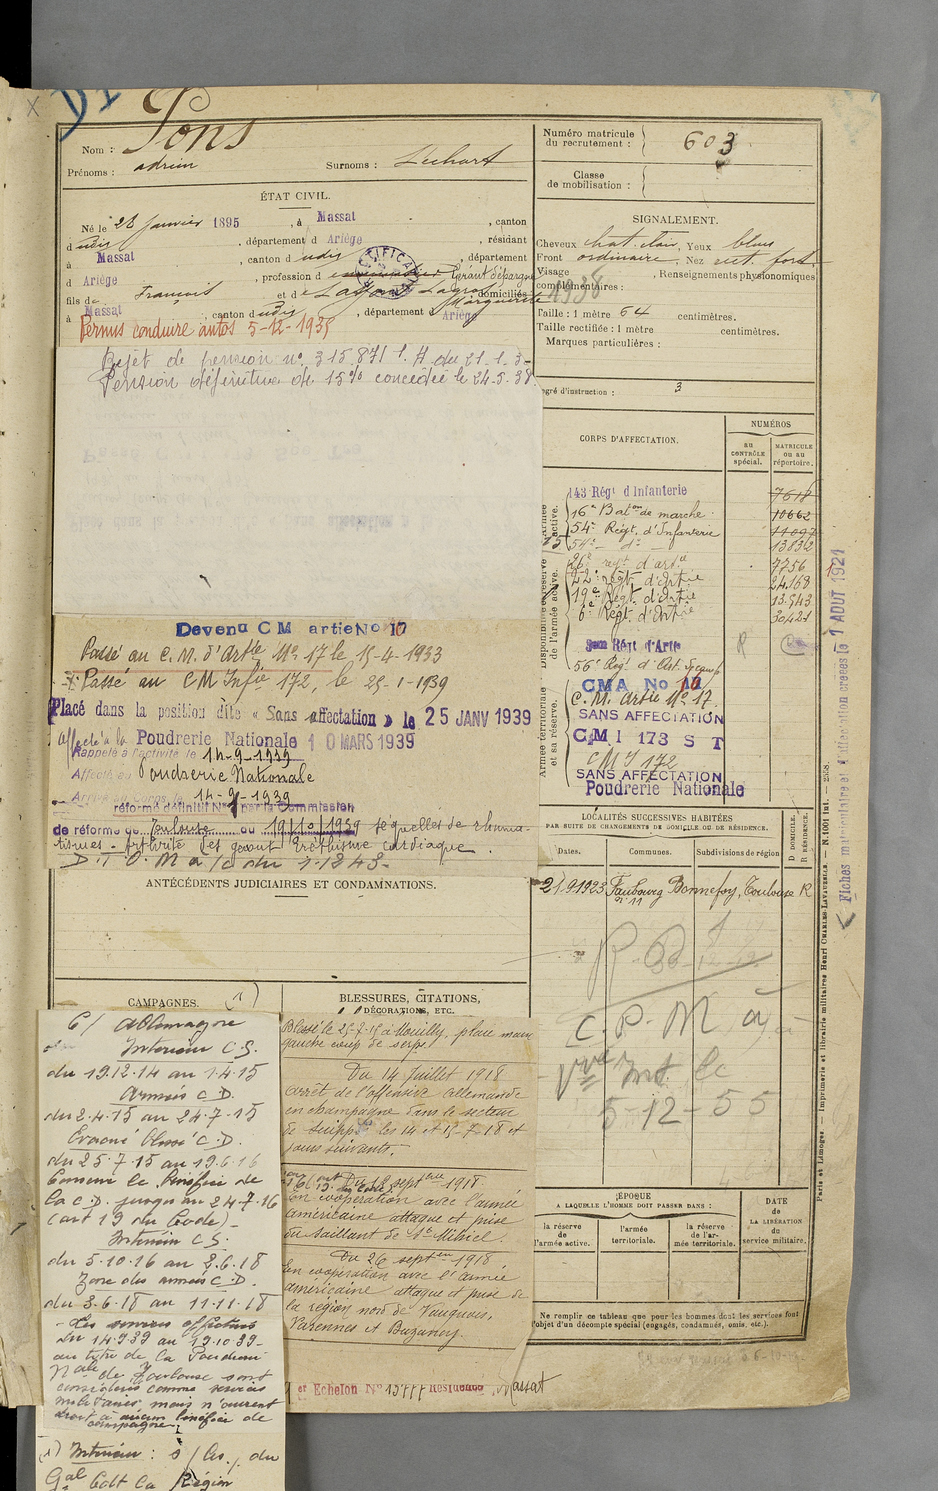 Nom : Pons
Prénoms : adrien
Surnoms : Lechart
Numéro matricule du recrutement : 603
Classe de mobilisation :
ÉTAT CIVIL.
Né le 28 Janvier 1895, à Massat, canton
dudit, département d Ariège, résidant
à Massat, canton dudit, département
d Ariège, profession d Gérant d'épargne
fils de François et de Lagros Marguerite domiciliés
à Massat, canton dudit, département d Ariège
Permis conduire autos 5-12-1935
RECTIFICATION
SIGNALEMENT.
Cheveux chat. clair, Yeux bleus
Front ordinaire, Nez rect. fort
Visage, Renseignements physionomiques
complémentaires : 1938
Taille : 1 mètre 64 centimètres.
Taille rectifiée : 1 mètre centimètres.
Marques particulières :
egré d'instruction : 3
Rejet de pension nº 315871 du 21-1-3
Pension définitive de 15% concédée le 24-5-38.
Devenu C M artie No 17
Passé au C. M. d'Artie Nº 17 le 15-4-1933
Passé au CM Infie 172, le 25-1-1939
Placé dans la position dite « Sans affectation » le 25 JANV 1939
affecté à la Poudrerie Nationale 10 MARS 1939
Rappelé à l'activité le 14-9-1939
Affecté au Poudrerie Nationale
Arrivé au corps le 14-9-1939
réformé définitif Nº par la Commission
de réforme de Toulouse du 19/10/1939 séquelles de rhuma-
tismes - Arthrite des genoux Eréthisme cardiaque.
CORPS D'AFFECTATION.
NUMÉROS
au CONTRÔLE spécial.
MATRICULE ou au répertoire.
Armée active.
143 Régt d Infanterie 7618
16e Baton de marche 10662
54e Régt. d'Infanterie 11097
54e dº 13832
Disponibilité et réserve de l'armée active.
26e régt d'artie 7756
22e régt d'Artie 24168
19e Régt. d'Artie 13.543
6e Régt. d'Artie 30421
Régt d'Artie
56e Régt. d'Art.
Armée territoriale et sa réserve.
CMA No 18
C. M. Artie Nº 17.
SANS AFFECTATION
CMI 173 S T
CMI 172
SANS AFFECTATION
Poudrerie Nationale
Fiches matriculaire et d'affectation créées le 1 AOUT 1921
LOCALITÉS SUCCESSIVES HABITÉES
PAR SUITE DE CHANGEMENTS DE DOMICILE OU DE RÉSIDENCE.
Dates.
Communes.
Subdivisions de région
D DOMICILE.
R RÉSIDENCE.
21.9.1923 Faubourg Bonnefoy, Toulouse R
nº 11
C. P. M à
le
5-12-55
ANTÉCÉDENTS JUDICIAIRES ET CONDAMNATIONS.
CAMPAGNES. (1)
C/ Allemagne
Intérieur C.S.
du 19.12.14 au 1.4.15
Armées C.D.
du 2.4.15 au 24.7.15
Evacué blessé C.D.
du 25.7.15 au 19.6.16
Conserve le bénéfice de
la C.D. jusqu'au 24.7.16
(art 19 du Code)-
Intérieur C.S.
du 5.10.16 au 2.6.18
Zone des armées C.D.
du 3.6.18 au 11.11.18
- Les services effectués
du 14.9.39 au 19.10.39-
au titre de la Poudrerie
Nale de Toulouse sont
considérés comme services
militaires, mais n'ouvrent
droit à aucun bénéfice de
campagne.
(1) Intérieur : s/ du
Gal Cdt la Région
BLESSURES, CITATIONS,
DÉCORATIONS, ETC.
Blessé le 25-7-15 à Mouilly, plaie main
gauche coup de serpe.
Du 14 Juillet 1918
arrêt de l'offensive allemande
en champagne dans le secteur
de Suippes les 14 et 15-7-18 et
jours suivants.
Du 12 septbre 1918
en coopération avec l'armée
américaine attaque et prise
du saillant de St Mihiel.
Du 26 septbre 1918
En coopération avec l'armée
américaine attaque et prise de
la région nord de Vauquois,
Varennes et Buzancy.
ÉPOQUE
A LAQUELLE L'HOMME DOIT PASSER DANS :
la réserve de l'armée active.
l'armée territoriale.
la réserve de l'armée territoriale.
DATE de LA LIBÉRATION du service militaire.
Ne remplir ce tableau que pour les hommes dont les services font
l'objet d'un décompte spécial (engagés, condamnés, omis, etc.).
er Echelon No 15777 Résidence Massat
Paris et Limoges. — Imprimerie et librairie militaires Henri CHARLES-LAVAUZELLE. — N. 1001 int. — 2558.